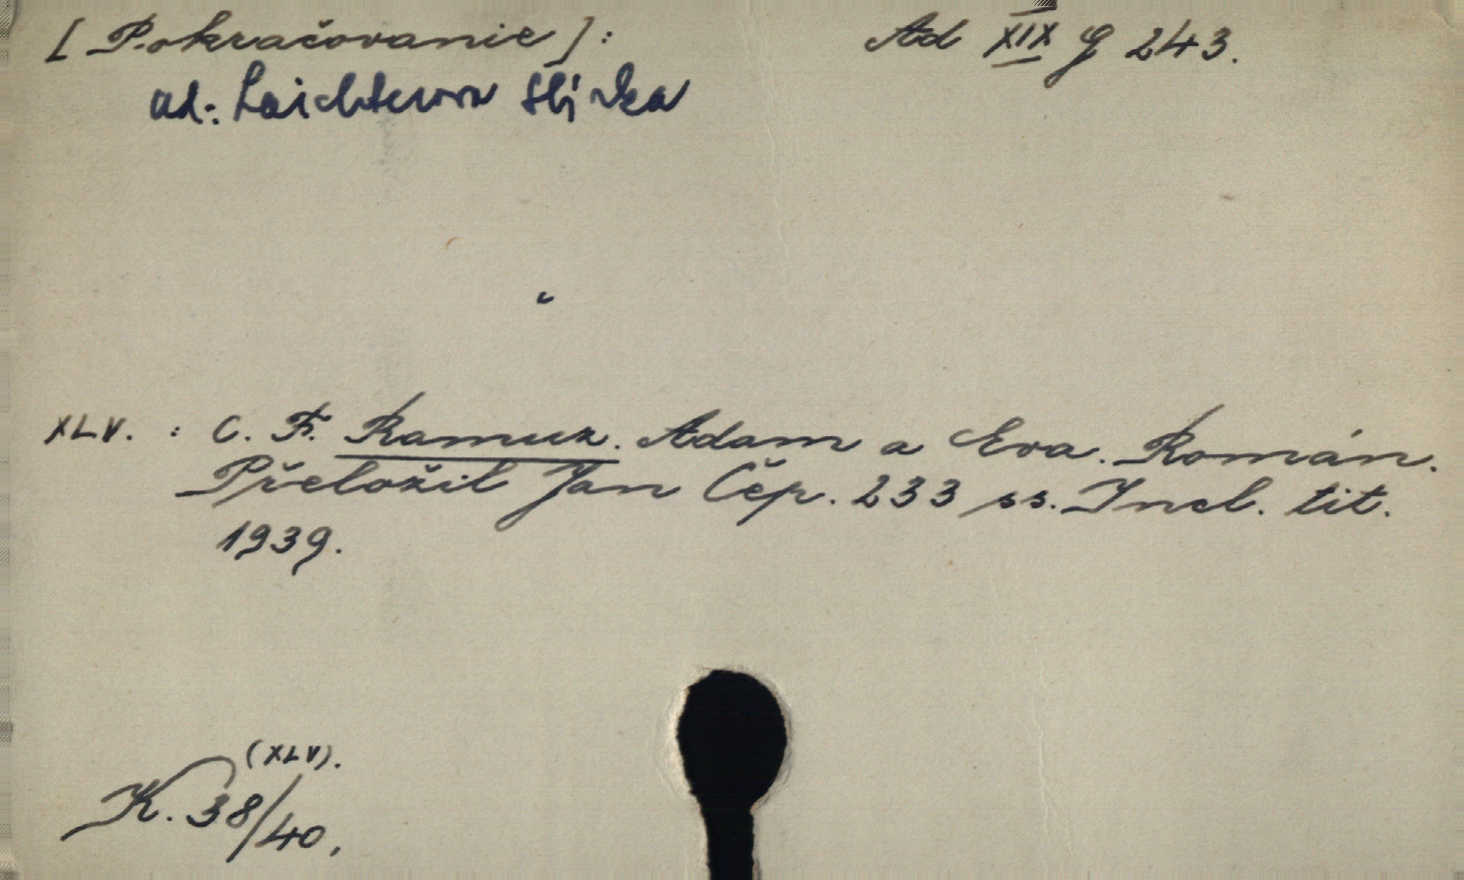 [Pokračovanie]: Ad XIX G 243.
ad: Laichterova sbírka
XLV. : C. F. Ramuz. Adam a Eva. Román.
Přeložil Jan Čep. 233 ss. Incl. tit.
1939.
(XLV).
K. 38/40,